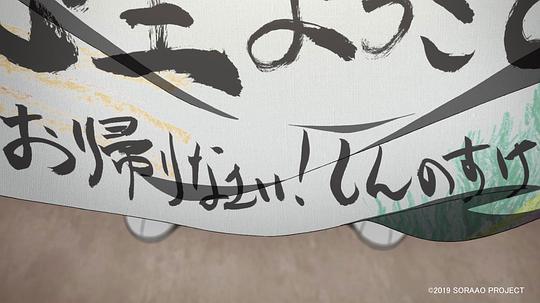 ようこ
お帰りなさい！しんのすけ
©2019 SORAAO PROJECT